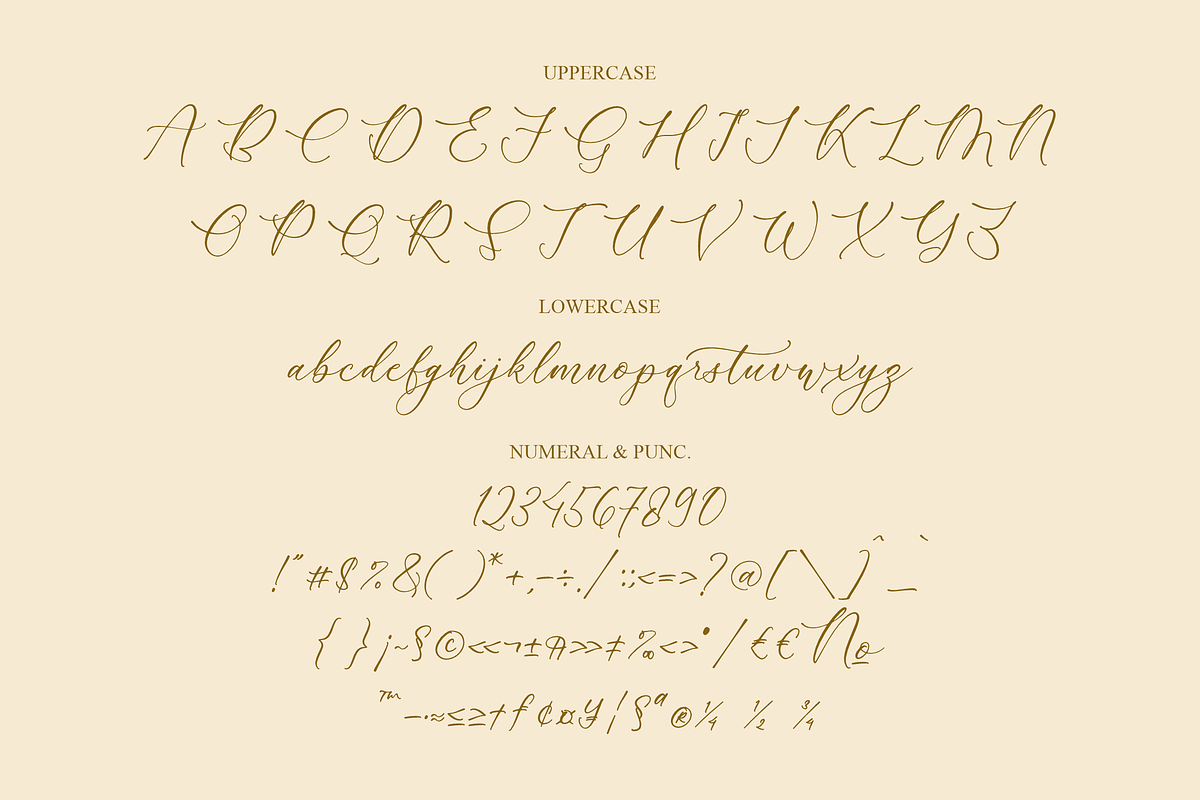 UPPERCASE
A B C D E F G H I J K L M N
O P Q R S T U V W X Y Z
LOWERCASE
abcdefghijklmnopqrstuvwxyz
NUMERAL & PUNC.
1234567890
!"#$%&( )*+,-÷./:;<=>?@[\]^_`
{ }¡~§©<<¬±<>>‡‰<>•/€€№
™–·≈≤≥†ƒ¢¤¥¦§ª®¼ ½ ¾